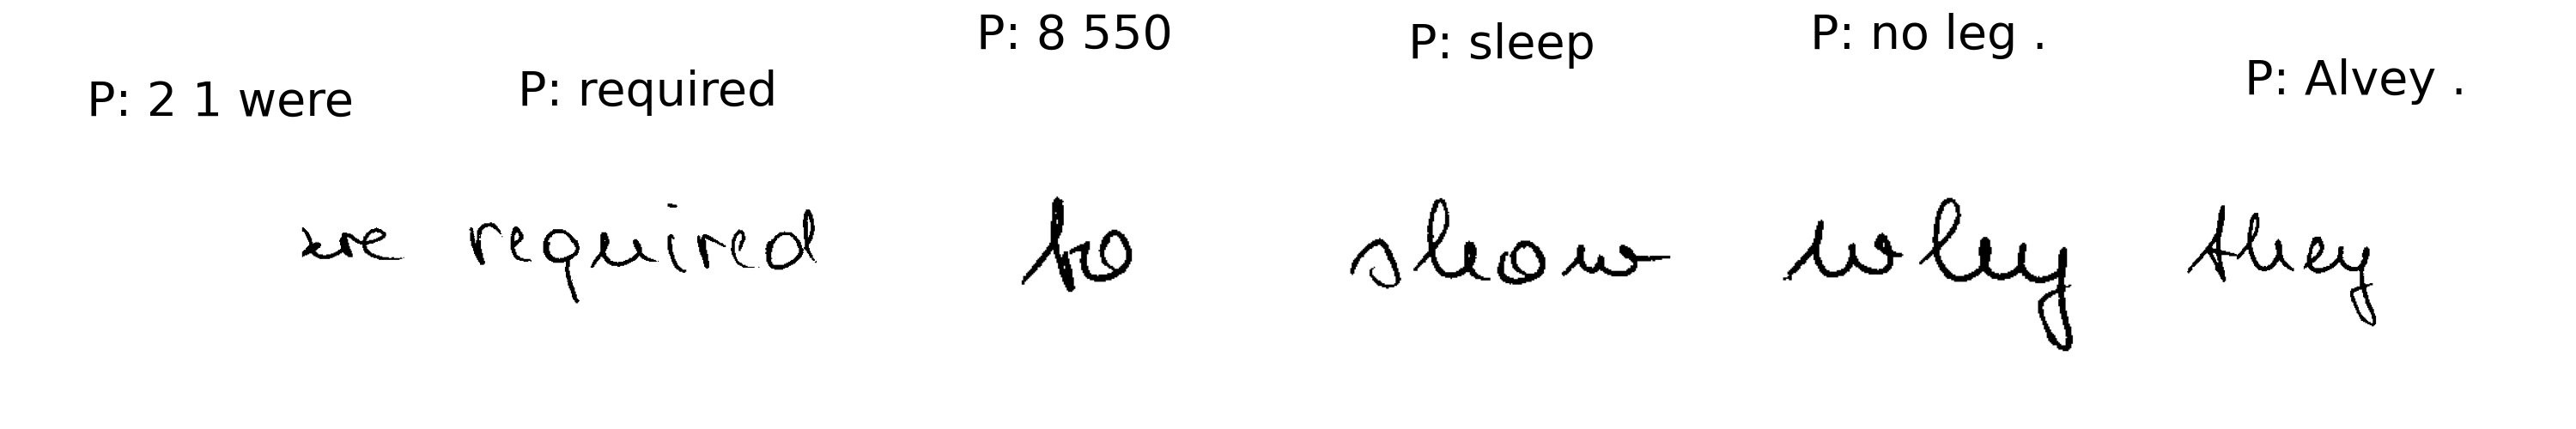 P: 2 1 were P: required P: 8 550 P: sleep P: no leg . P: Alvey .
are required to show why they